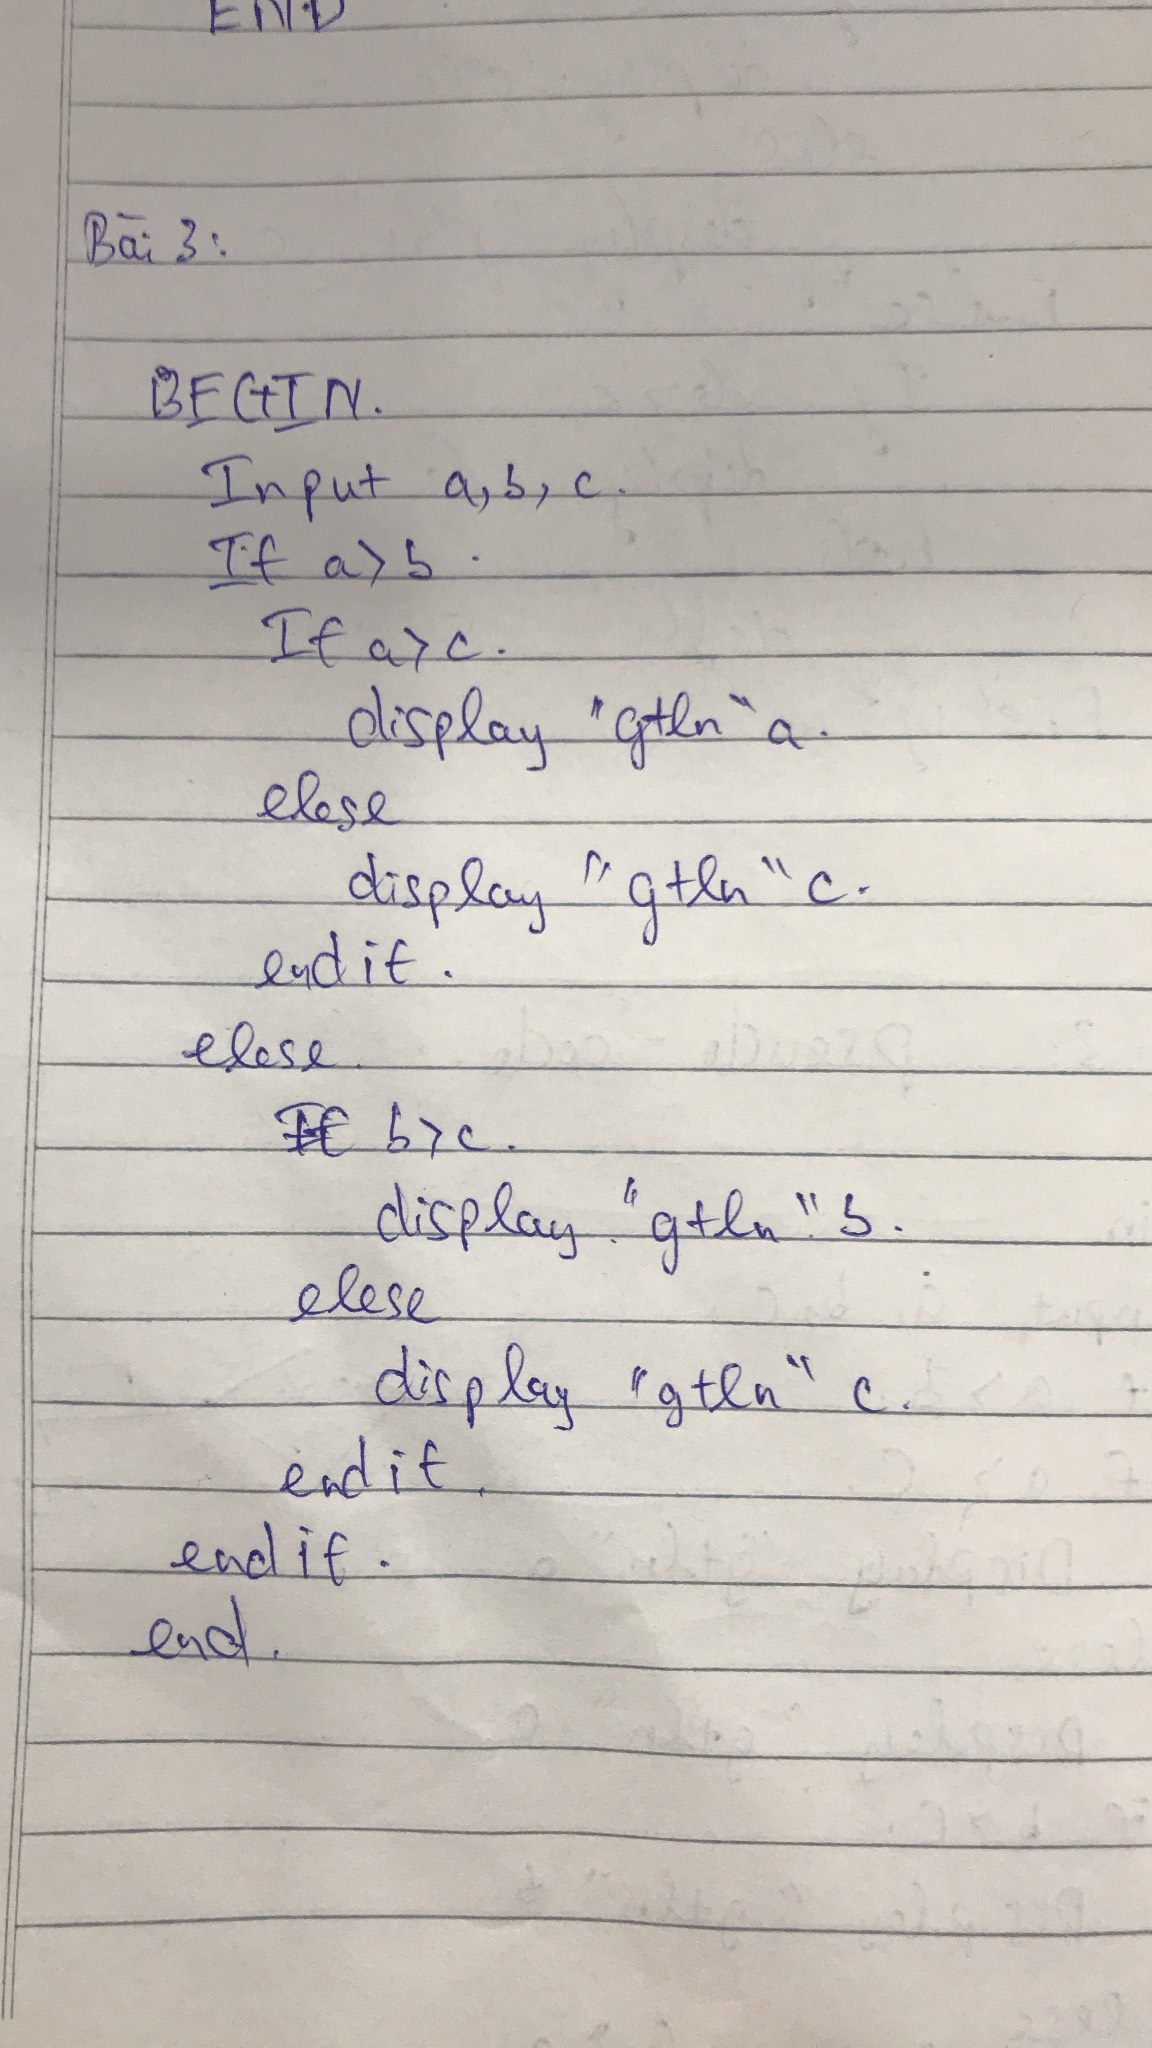 END
Bài 3:
BEGIN.
Input a, b, c.
If a > b.
If a > c.
display "gtln" a.
else
display "gtln" c.
end if.
else.
If b > c.
display "gtln" b.
else
display "gtln" c.
end if.
end if.
end.